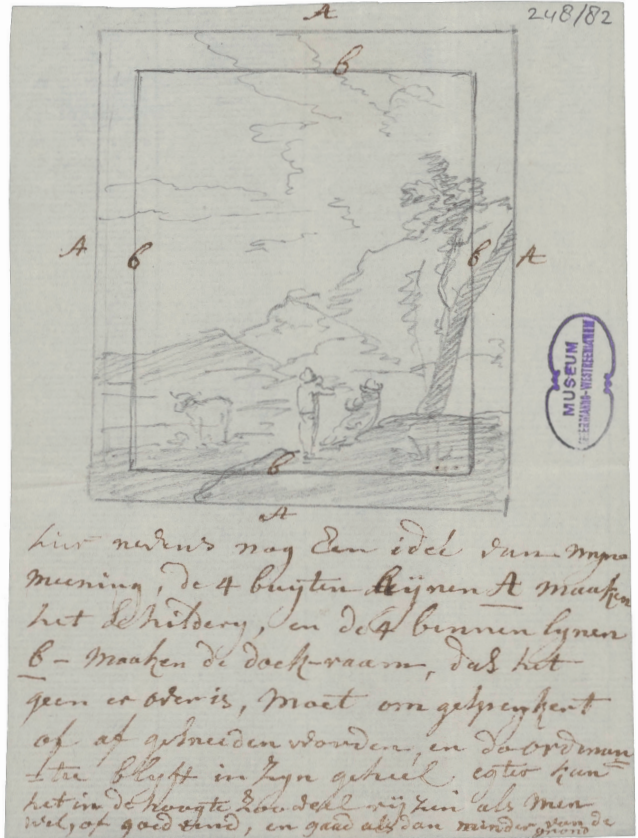 248/82
A
B
A B B A
B
A
MUSEUM
MEERMANNO-WESTREENIANUM
hier nevens nog Een ideé van myne
meening, de 4 buyten lijnen A maaken
het Schildery, en de 4 binnen lynen
B - maaken de doek-raam, dus het
geen er over is, moet om gespeykert
of af gesneeden worden, en de ordinan
tie blyft in Zyn geheel, egter kan
het in de hoogte Zoo veel ryzen als men
wil, of goed vind, en gaad als dan minder van de
grond